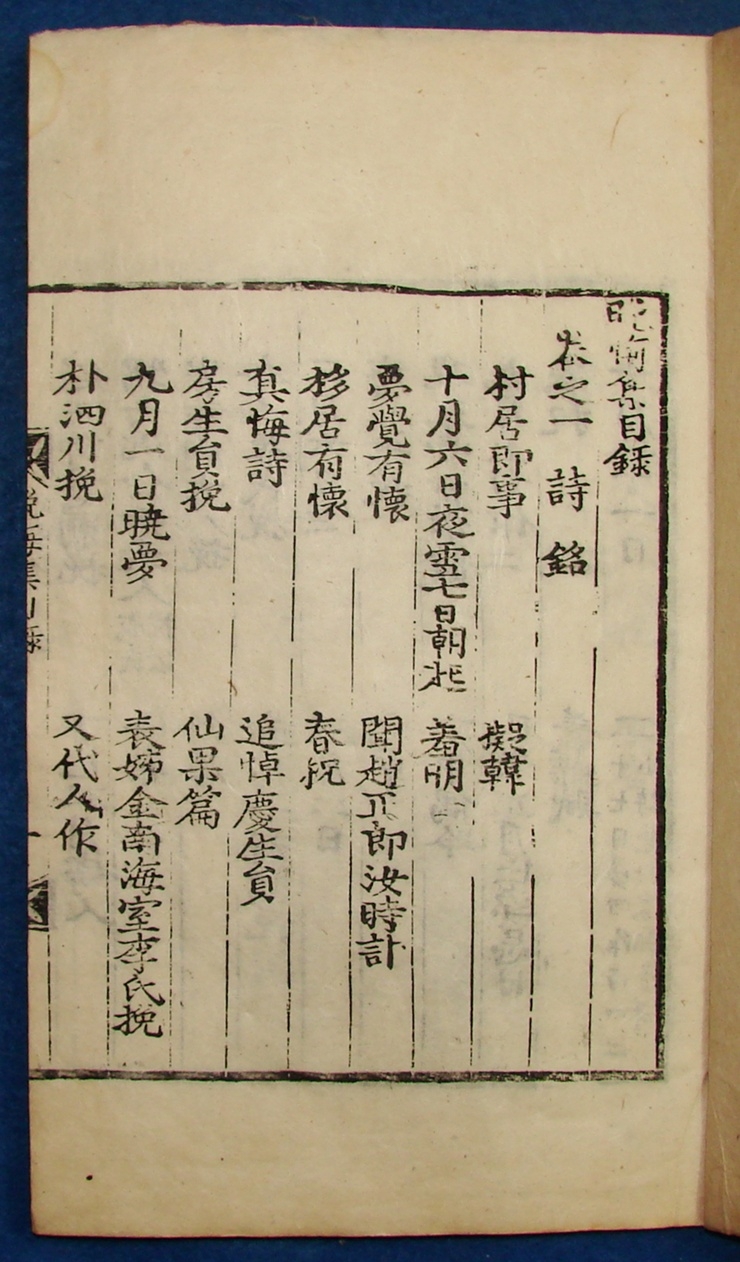 晩悔集目録
卷之一 詩 銘
村居即事 擬韓
十月六日夜雪七日朝起 着明
夢覺有懷 聞趙正郎汝時訃
移居有懷 春祝
真悔詩 追悼慶生員
房生員挽 仙果篇
九月一日曉夢 表姊金南海室李氏挽
朴泗川挽 又代人作
晩悔集目錄 一